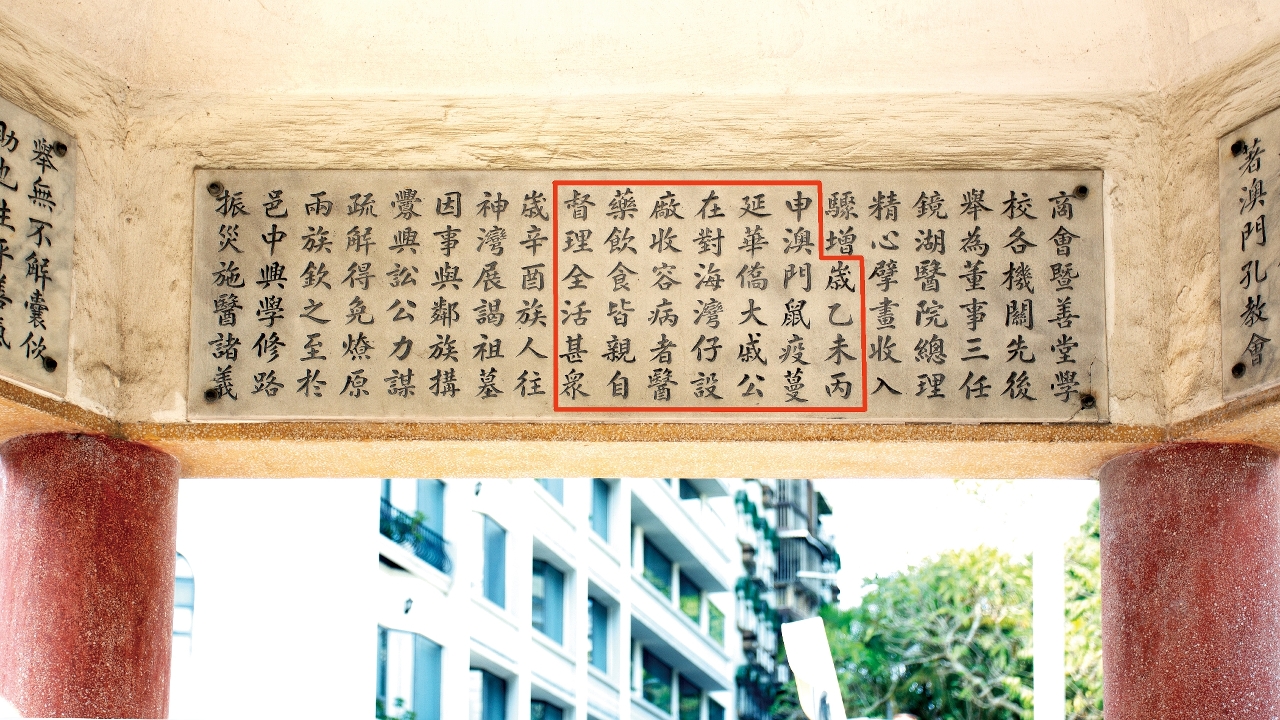 著澳門孔教會
商會暨善堂學
校各機關先後
舉為董事三任
鏡湖醫院總理
精心擘畫收入
驟增歲乙未丙
申澳門鼠疫蔓
延華僑大戚公
在對海灣仔設
廠收容病者醫
藥飲食皆親自
督理全活甚衆
歲辛酉族人往
神灣展謁祖墓
因事與鄰族搆
釁興訟公力謀
疏解得免燎原
兩族欽之至於
邑中興學修路
振災施醫諸義
舉無不解囊佽
助也生平善氣